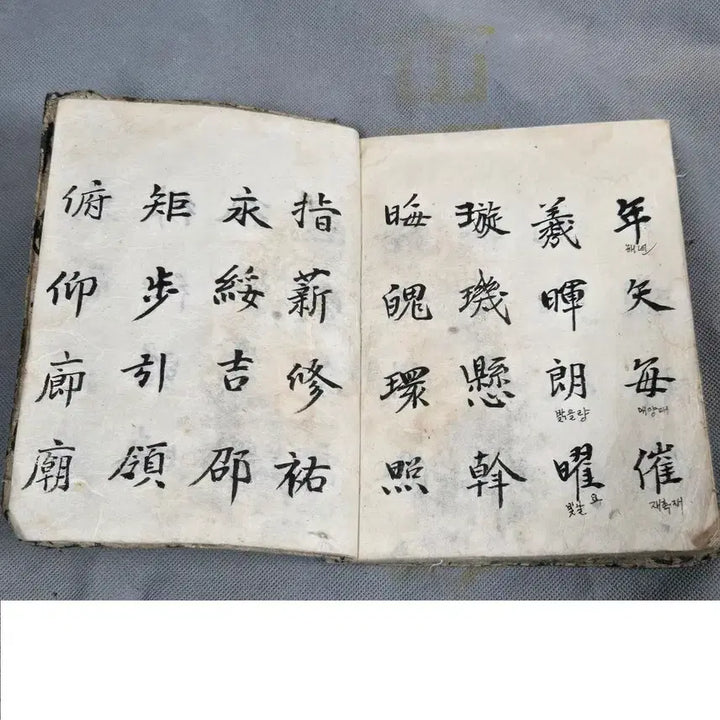 年矢每催
해년
매양매
재촉재
羲暉朗曜
밝을랑
빛날 요
璇璣懸斡
晦魄環照
指薪修祐
永綏吉邵
矩步引領
俯仰廊廟